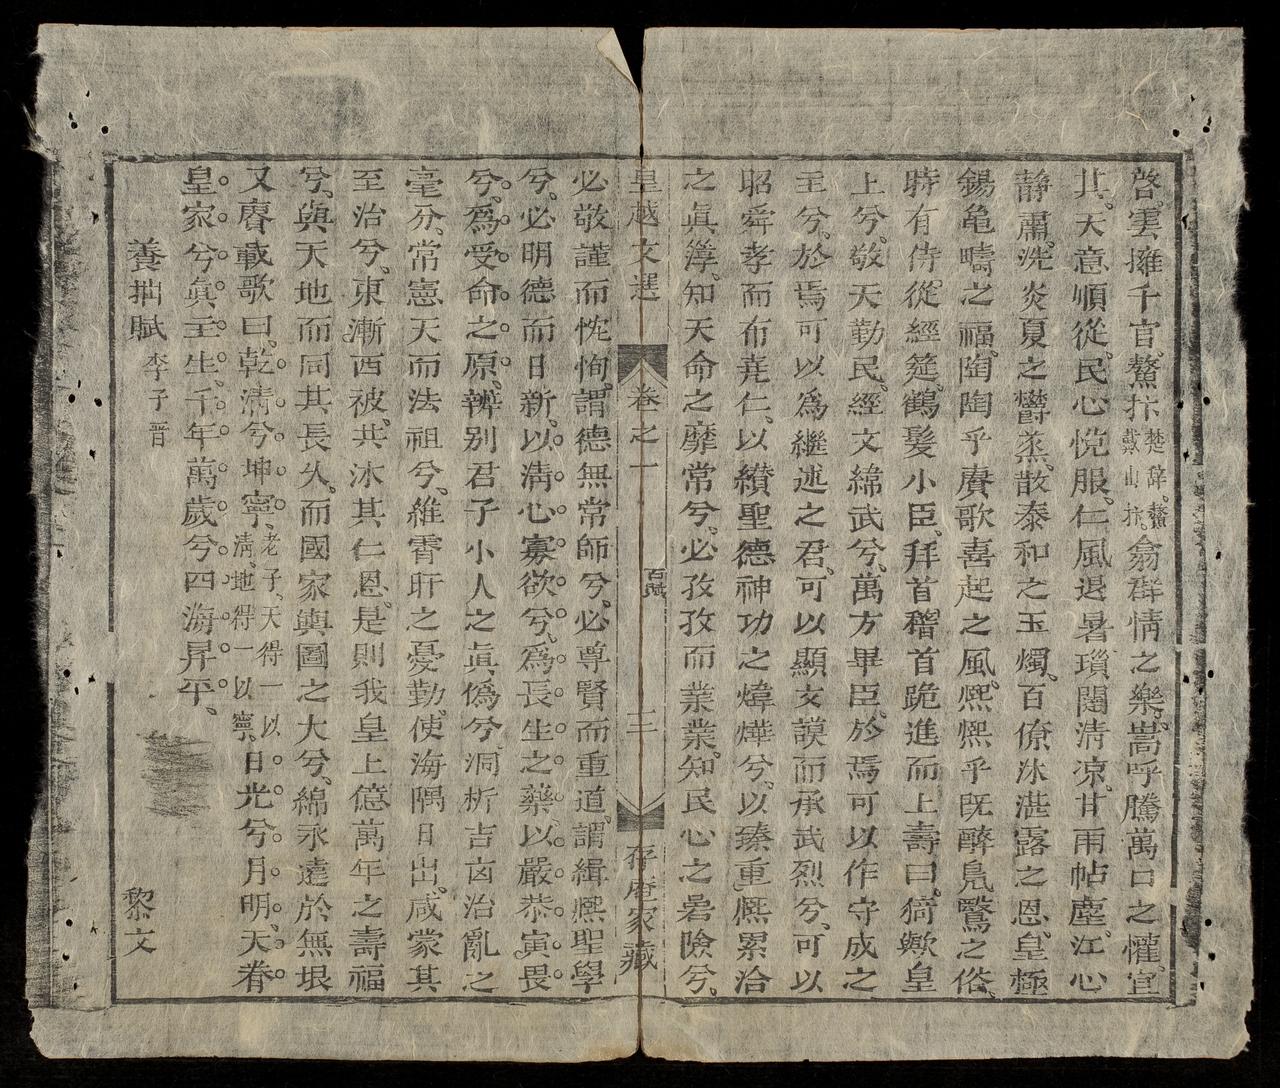 啓。雲擁千官。鰲抃楚辞。鰲戴山抃。翕群情之樂。嵩呼騰萬口之懽。宜
其。天意順從。民心悅服。仁風退暑。瑣闥清凉。甘雨帖塵。江心
静肅。洗炎夏之欝蒸。散泰和之玉燭。百僚沐湛露之恩。皇極
錫亀疇之福。陶陶乎賡歌喜起之風。熙熙乎既醉鳧鷖之俗。
時有侍從經筵。鶴髮小臣。拜首稽首跪進而上壽曰。猗歟皇
上兮。敬天勤民。經文緯武兮。萬方畢臣。於焉可以作守成之
主兮。於焉可以為繼述之君。可以顯文謨而承武烈兮。可以
昭舜孝而布尭仁。以纘聖德神功之煒燁兮。以臻重熙累洽
之真淳。知天命之靡常兮。必孜孜而業業。知民心之㫷險兮。
皇越文選 卷之一 百賦 三 存庵家藏
必敬謹而恂恂。謂德無常師兮。必尊賢而重道。謂緝熙聖學
兮。必明德而日新。以淸心寡欲兮。為長生之藥。以嚴恭寅畏
兮。為受命之原。辨别君子小人之真偽兮。洞析吉凶治亂之
毫分。常憲天而法祖兮。維霄旰之憂勤。使海隅日出。咸蒙其
至治兮。東漸西被。共沐其仁恩。是則我皇上億萬年之壽福
兮。與天地而同其長久。而國家輿圖之大兮。綿永遠於無垠
又賡載歌曰。乾淸兮坤寧。老子。天得一以淸。地得一以寧。日光兮月明。天眷
皇家兮真主生。千年萬歲兮四海昇平。
養拙賦 李子晋 黎文